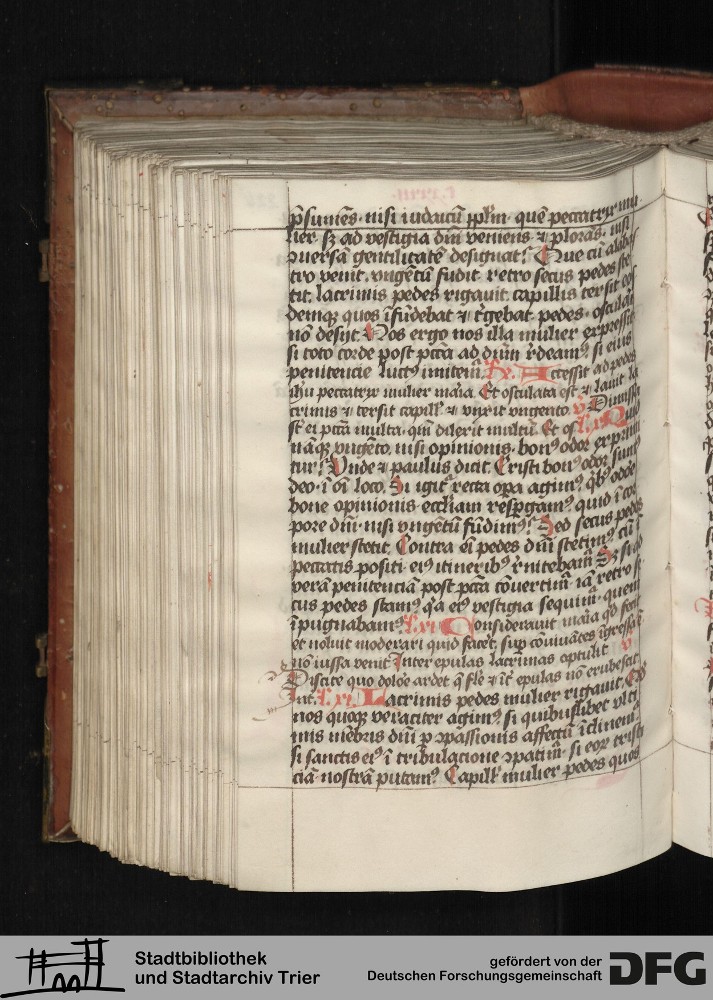 p̄sumēs · nisi iudaicū pp̄lm · quē peccatrix mu
lier · sꝫ ad vestigia dn̄i veniens ⁊ ploras · nisi
ↄuersā gentilitatē designat? Que cū alabas
tro venit · vngētū fudit · retro secus pedes ste
tit · lacrimis pedes rigauit · capillis tersit eos
demqꝫ quos īfūdebat ⁊ t̄gebat · pedes · osculari
nō desijt · Nos ergo nos illa mulier expressit
si toto corde post pctā ad dn̄m r̄deamꝰ si eiꝰ
penitencie luctꝰ imitem̄ · R̄ · Accessit ad pedes
ih̄u peccatrix mulier maīa · Et osculata est ⁊ lauit la
crimis ⁊ tersit capill' ⁊ vnxit vngento · v̄ Dimissa
st̄ ei pctā multa · qm̄ dilexit multū · Et os · l · x · Quid
nāqꝫ vngēto · nisi opinionis · bonꝰ odor exprimi
tur? Vnde ⁊ paulus dicit · Cristi bonꝰ odor sumꝰ
deo · ī oī loco · Si igit̄ recta opa agimꝰ qͥbꝰ odore
bone opinionis · eccl̄iam resp̄gamꝰ quid ī cor
pore dn̄i · nisi vngētū fūdimꝰ? Sed secus pedes
mulier stetit · Contra eī pedes dn̄i stetimꝰ cū ī
peccatis positi · eiꝰ itineribꝰ r̄nitebam̄ · Sꝫ si ad
verā penitenciā post pctā cōuertim̄ · iā retro se
cus pedes stamꝰ qꝛ eiꝰ vestigia sequim̄ · quem
īpugnabamꝰ · R̄ · xi · Considerauit maīa qd̄ fecit
et noluit moderari quid facēt · sup cōuiuātes īgressa ē
nō iussa venit Inter epulas lacrimas optulit · v̄
Discite quo dolore ardet q̄ fle ⁊ īt̄ epulas nō erubescit
Int̄ · l · xi · Lacrimis pedes mulier rigauit · Et
nos quoqꝫ veraciter agimꝰ si quibuslibet vlti
mis mēbris dn̄i p ↄpassionis affectū īclinem̄
si sanctis eiꝰ ī tribulacione ↄpatim̄ · si eoꝝ tristi
ciā nostrā putamꝰ Capill' mulier pedes quos
Stadtbibliothek
und Stadtarchiv Trier
gefördert von der
Deutschen Forschungsgemeinschaft
DFG